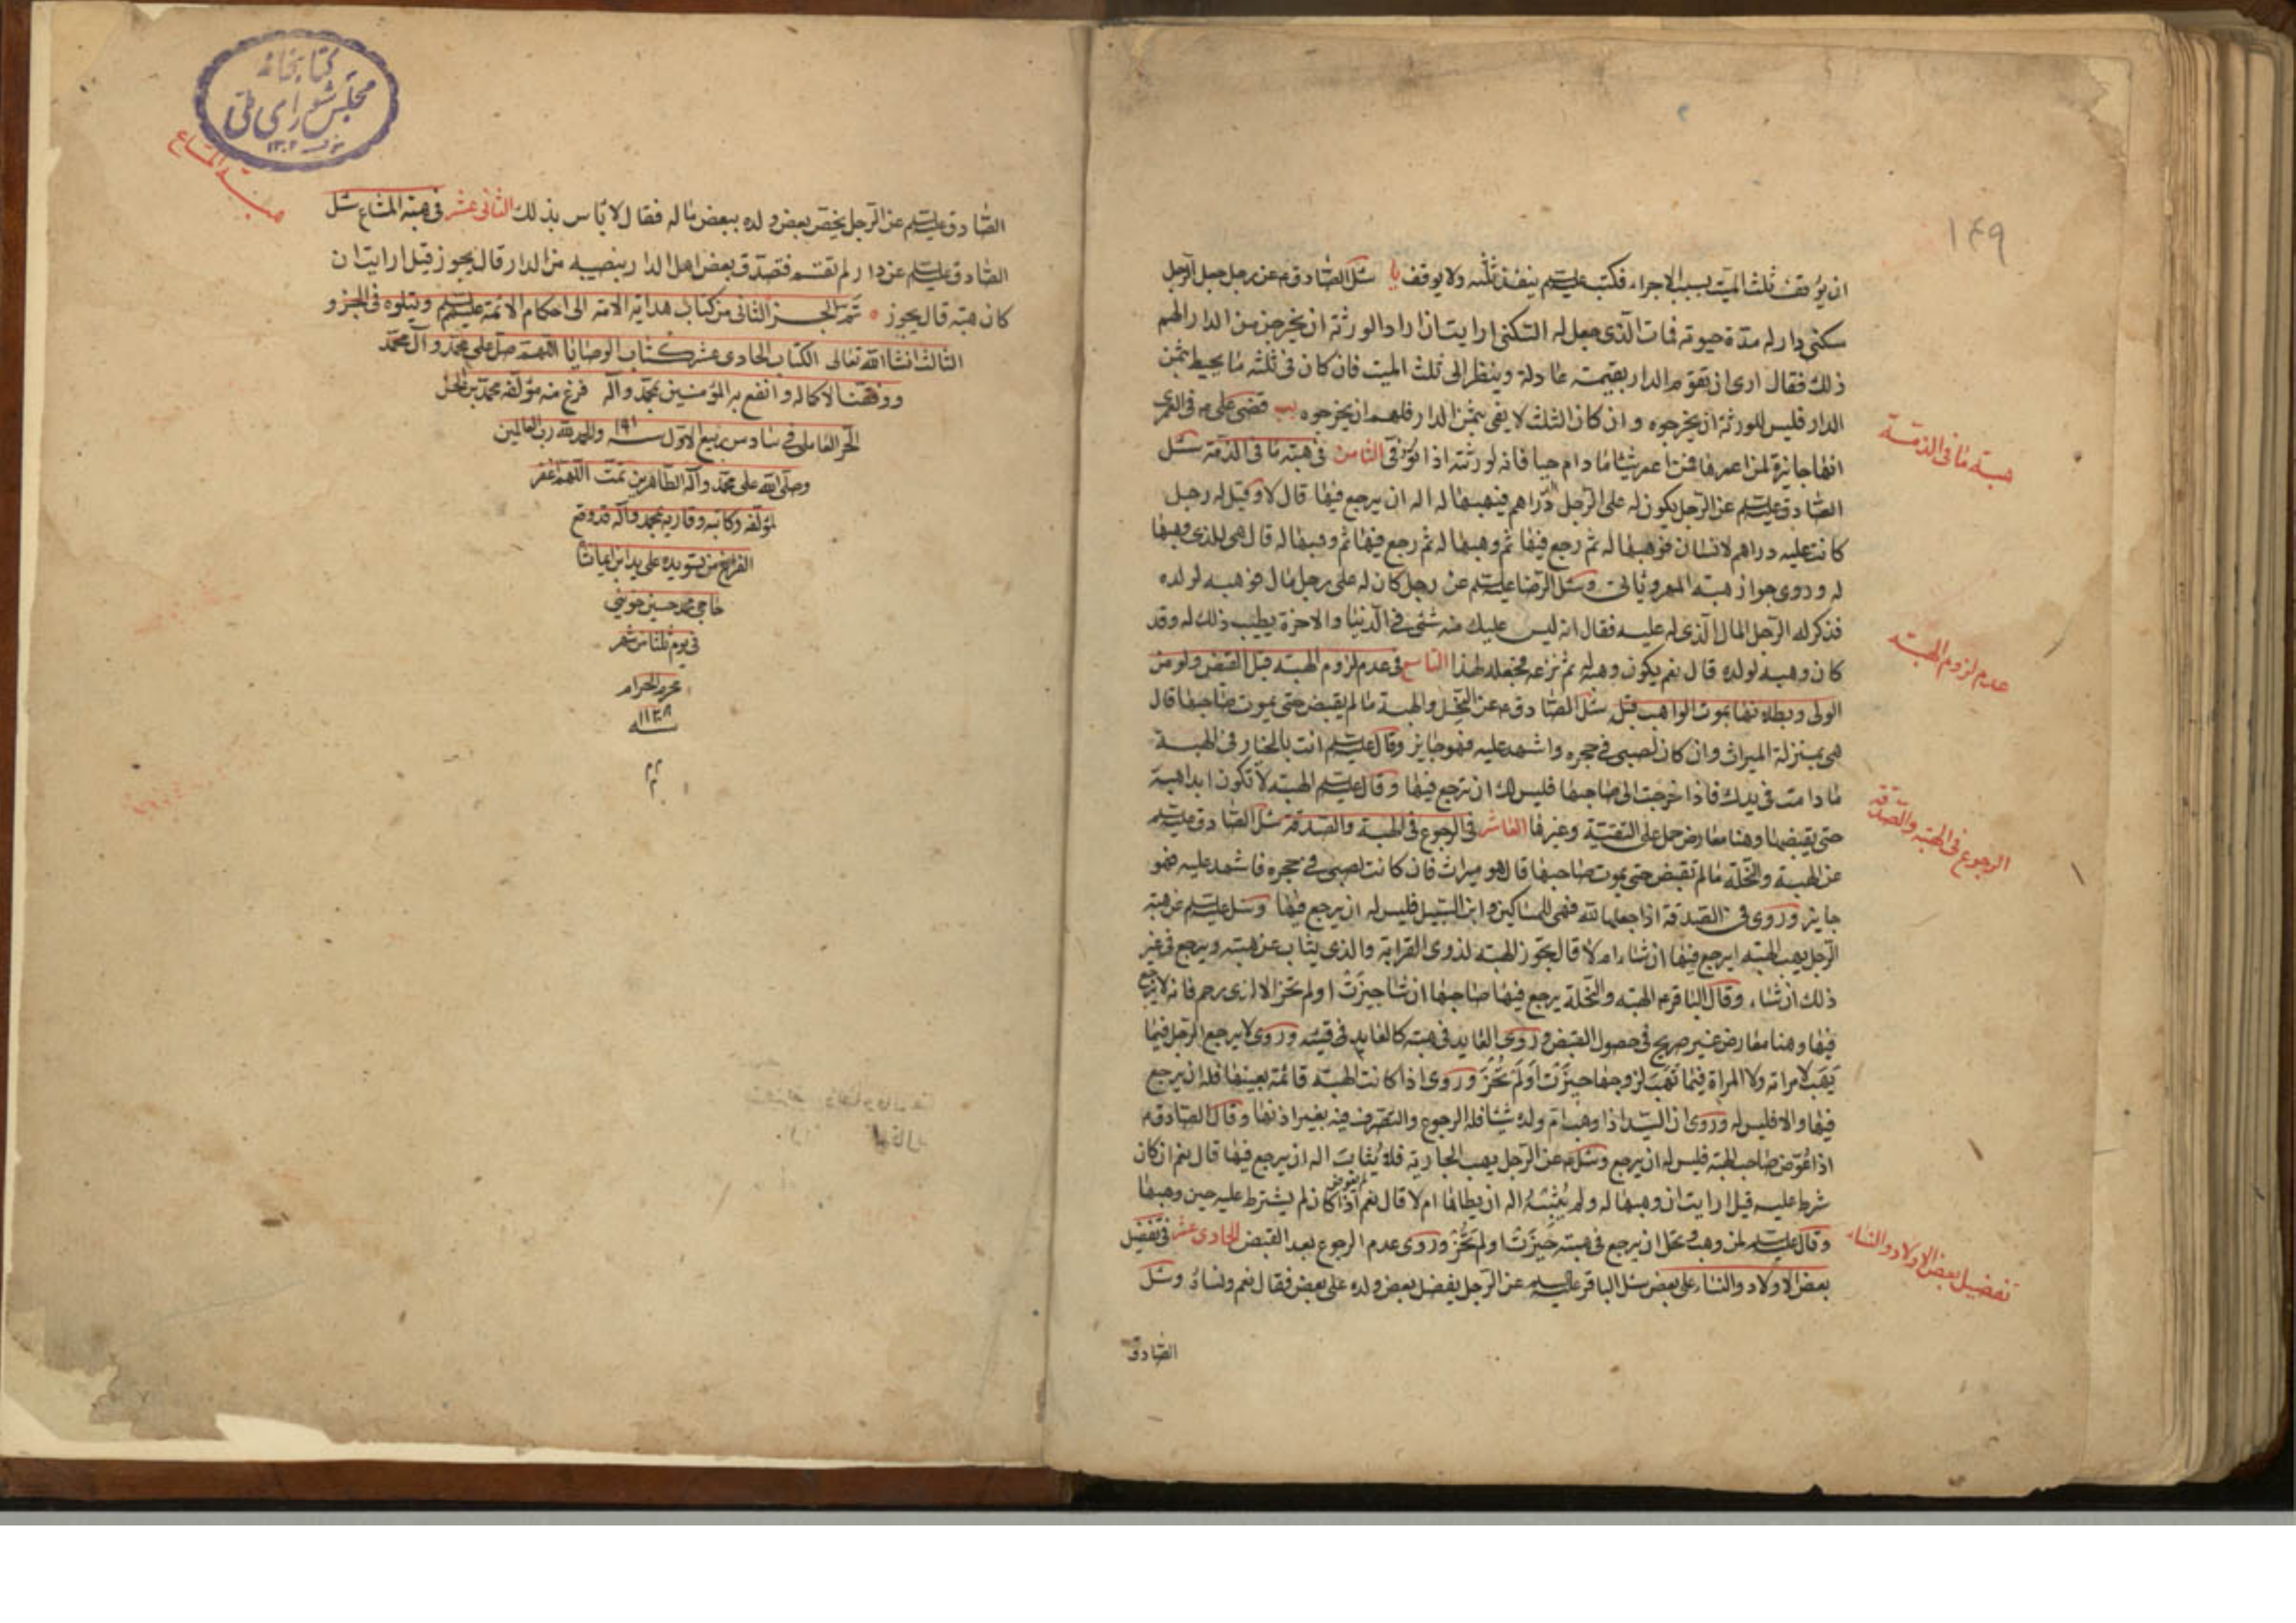 ١٤٩
ان يوقف ثلث الميت بسبب الاجراء فكتب عليه السلم ينفذ ثلثه ولا يوقف يا سئل الصادق م عن رجل جعل لرجل
سكنى دار له مدة حيوته فمات الذى جعل له السكنى ارايت ان اراد الورثة ان يخرجن من الدار الهم
ذلك فقال ارى ان تقوم الدار بقيمة عادلة وينظر الى ثلث الميت فان كان فى ثلثه ما يحيط بثمن
الدار فليس للورثة ان يخرجوه وان كان الثلث لا يفى بثمن الدار فلهم ان يخرجوه يب قضى على م فى العمرى
انها جائزة لمن اعمرها فمن اعمر شيئا ما دام حيا فانه لورثته اذا توفى الثامن فى هبة ما فى الذمة سئل
هبة ما فى الذمة
الصادق عليه السلم عن الرجل يكون له على الرجل الدراهم فيهبها له اله ان يرجع فيها قال لا وقيل له رجل
كانت عليه دراهم لانسان فوهبها له ثم رجع فيها ثم وهبها له ثم رجع فيها ثم وهبها له قال هى للذى وهبها
له وروى جواز هبة المهر وياتى وسئل الرضا عليه السلم عن رجل كان له على رجل مال فوهبه لولده
فذكر له الرجل المال الذى له عليه فقال انه ليس عليك منه شئ فى الدنيا والاخرة يطيب ذلك له وقد
كان وهبه لولده قال نعم يكون وهبه له ثم نزعه فجعله لهذا التاسع فى عدم لزوم الهبة قبل القبض ولو من
عدم لزوم الهبة
الولى وبطلانها بموت الواهب قبله سئل الصادق م عن النحل والهبة ما لم يقبض حتى يموت صاحبها قال
هى بمنزلة الميراث وان كان لصبى فى حجره واشهد عليه فهو جايز وقال عليه السلم انت بالخيار فى الهبة
ما دامت فى يدك فاذا خرجت الى صاحبها فليس لك ان ترجع فيها وقال عليه السلم الهبة لا تكون ابدا هبة
حتى يقبضها وهنا معارض حمل على التقية وغيرها العاشر فى الرجوع فى الهبة والصدقة سئل الصادق عليه السلم
الرجوع فى الهبة والصدقة
عن الهبة والنحلة ما لم تقبض حتى يموت صاحبها قال هو ميراث فان كانت لصبى فى حجره فاشهد عليه فهو
جايز وروى فى الصدقة اذا جعلها لله فهى للمساكين وابن السبيل فليس له ان يرجع فيها وسئل عليه السلم عن هبة
الرجل يهب الهبة ايرجع فيها ان شاء ام لا قال تجوز الهبة لذوى القرابة والذى يثاب عن هبته ويرجع فى غير
ذلك ان شاء وقال الباقر م الهبة والنحلة يرجع فيها صاحبها ان شا حيزت او لم تحز الا لذى رحم فانه لا يرجع
فيها وهنا معارض غير صريح فى حصول القبض وروى العايد فى هبته كالعايد فى قيئه وروى لا يرجع الرجل فيما
يهب لامراته ولا المراة فيما تهب لزوجها حيزت او لم تحز وروى اذا كانت الهبة قائمة بعينها فله ان يرجع
فيها والا فليس له وروى ان السيد اذا وهب ام ولده شيئا فله الرجوع والتصرف فيه بغير اذنها وقال الصادق م
اذا عوض صاحب الهبة فليس له ان يرجع وسئل م عن الرجل يهب الجارية فلا يثاب اله ان يرجع فيها قال نعم ان كان
شرط عليه قيل ارايت ان وهبها له ولم يثبه اله ان يطاها ام لا قال نعم اذا كان لم يشترط عليه حين وهبها
وقال عليه السلم لمن وهب ونحل ان يرجع فى هبته حيزت او لم تحز وروى عدم الرجوع بعد القبض الحادى عشر فى تفضيل
تفضيل بعض الاولاد والنساء
بعض الاولاد والنساء على بعض سئل الباقر عليه السلم عن الرجل يفضل بعض ولده على بعض فقال نعم ونساؤه وسئل
الصادق
كتابخانه
مجلس شوراى ملى
١٣٠٢
هبة المشاع
الصادق عليه السلم عن الرجل يخص بعض ولده ببعض ماله فقال لا باس بذلك الثانى عشر فى هبة المشاع سئل
الصادق عليه السلم عن دار لم تقسم فتصدق بعض اهل الدار بنصيبه من الدار قال يجوز قيل ارايت ان
كان هبة قال يجوز ٥ تم الجزء الثانى من كتاب هداية الامة الى احكام الائمة عليهم السلم ويتلوه فى الجزو
الثالث انشا الله تعالى الكتاب الحادى عشر كتاب الوصايا اللهم صل على محمد وآل محمد
ووفقنا لاكماله وانفع به المؤمنين بمحمد وآله فرغ منه مؤلفه محمد بن الحسن
الحر العاملى فى سادس ربيع الاول سنه والحمد لله رب العالمين
وصلى الله على محمد وآله الطاهرين تمت اللهم اغفر
لمؤلفه وكاتبه وقاريه بمحمد وآله قد وقع
الفراغ من تسويده على يد ابن
حاجى محمد حسين
فى يوم شهر
محرم الحرام
سنه ١١٣٨